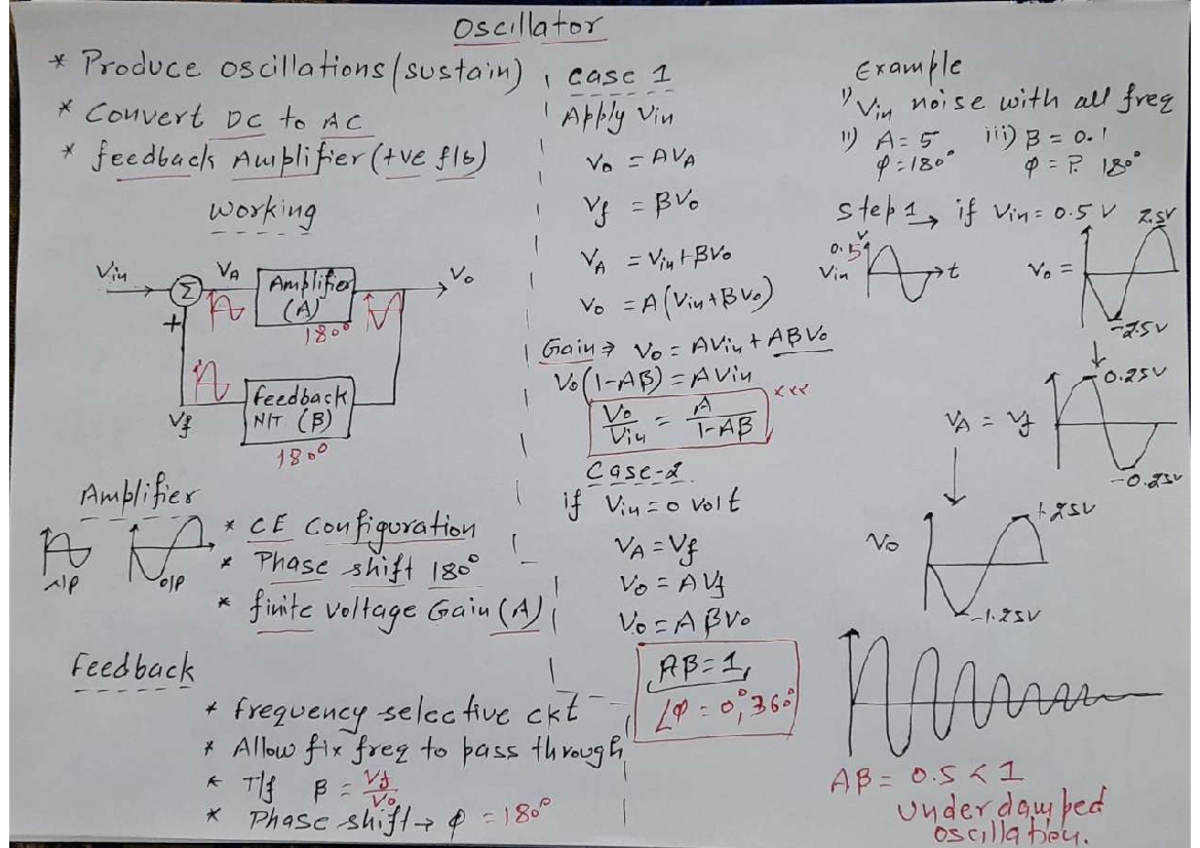 Oscillator
* Produce oscillations (sustain)
* Convert DC to AC
* feedback Amplifier (+ve f/b)
Working
Vin
Σ
VA
Amplifier
(A)
180°
Vo
+
Vf
feedback
N/T (β)
180°
Amplifier
i/p
o/p
* CE Configuration
* Phase shift 180°
* finite voltage Gain (A)
Feedback
* frequency selective ckt
* Allow fix freq to pass through
* T/f β = Vf/Vo
* Phase shift → φ = 180°
Case 1
Apply Vin
Vo = AVA
Vf = βVo
VA = Vin + βVo
Vo = A(Vin + βVo)
Gain ⇒ Vo = AVin + AβVo
Vo(1-Aβ) = AVin
Vo/Vin = A/1-Aβ ×××
Case-2
if Vin = 0 volt
VA = Vf
Vo = AVf
Vo = AβVo
Aβ = 1,
∠φ = 0°, 360°
Example
i) Vin noise with all freq
ii) A = 5 iii) β = 0.1
φ = 180° φ = P. 180°
Step 1 → if Vin = 0.5 V
0.5V
Vin
t
Vo =
2.5V
-2.5V
VA = Vf
0.25V
-0.25V
Vo
1.25V
-1.25V
Aβ = 0.5 < 1
Under damped
oscillation.